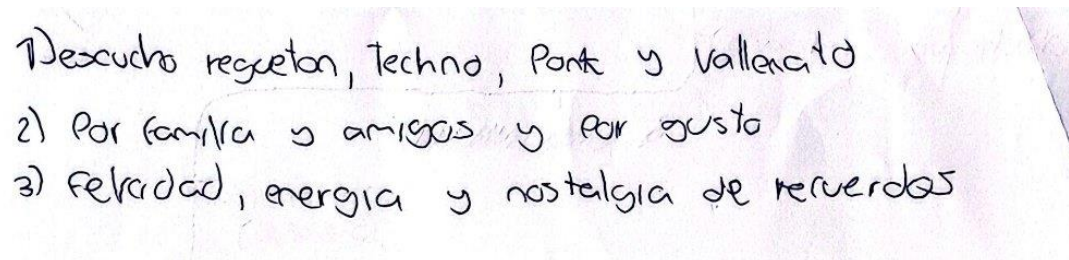 1) escucho regueton, Techno, Ponk y Vallenato
2) Por familia y amigos y por gusto
3) felicidad, energia y nostalgia de recuerdos